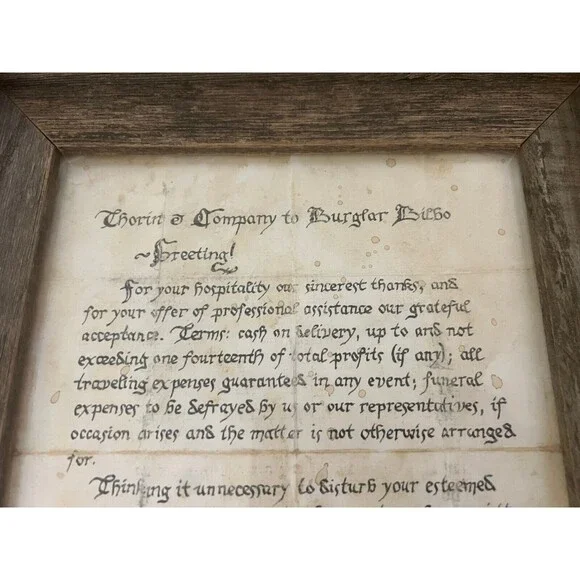 Thorin & Company to Burglar Bilbo
~Greeting!
For your hospitality our sincerest thanks, and
for your offer of professional assistance our grateful
acceptance. Terms: cash on delivery, up to and not
exceeding one fourteenth of total profits (if any); all
traveling expenses guaranteed in any event; funeral
expenses to be defrayed by us or our representatives, if
occasion arises and the matter is not otherwise arranged
for.
Thinking it unnecessary to disturb your esteemed